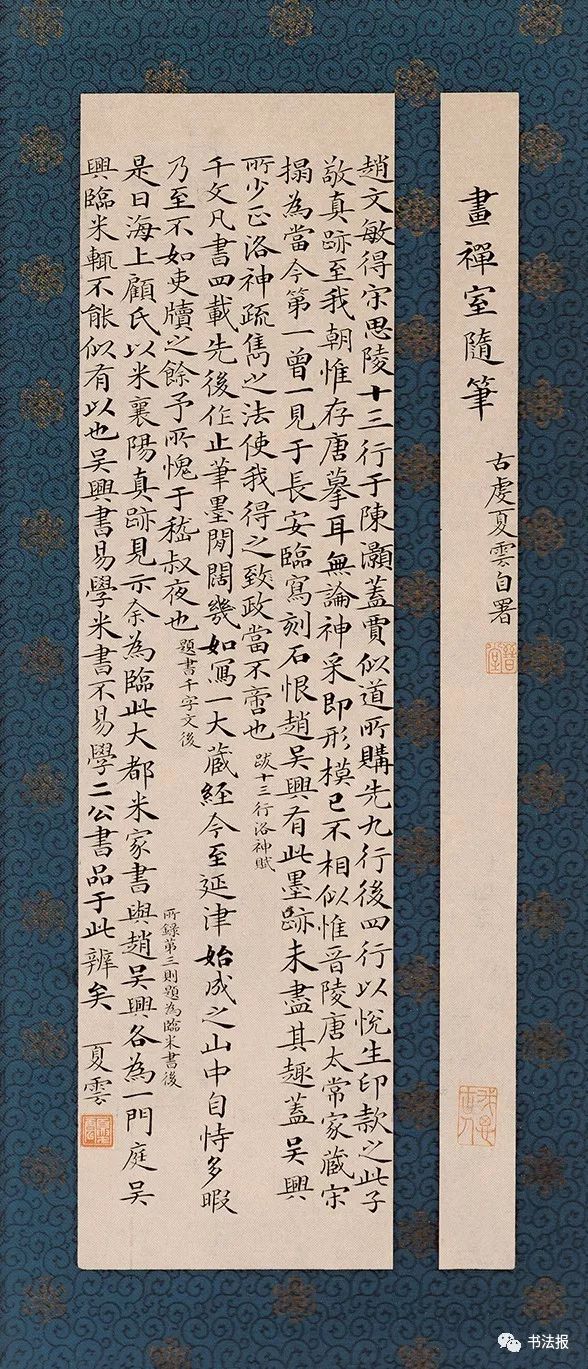 畫禪室隨筆
古虞夏雲自署
趙文敏得宋思陵十三行于陳灝蓋賈似道所購先九行後四行以悅生印款之此子
敬真跡至我朝惟存唐摹耳無論神采即形模已不相似惟晉陵唐太常家藏宋
搨為當今第一曾一見于長安臨寫刻石恨趙吳興有此墨跡未盡其趣蓋吳興
所少正洛神疏雋之法使我得之致政當不啻也 跋十三行洛神賦
千文凡書四載先後作止筆墨閒闊幾如寫一大藏經今至延津始成之山中自恃多暇
乃至不如吏牘之餘予所愧于嵇叔夜也 題書千字文後
所錄第三則題為臨米書後
是日海上顧氏以米襄陽真跡見示余為臨此大都米家書與趙吳興各為一門庭吳
興臨米輒不能似有以也吳興書易學米書不易學二公書品于此辨矣 夏雲
书法报